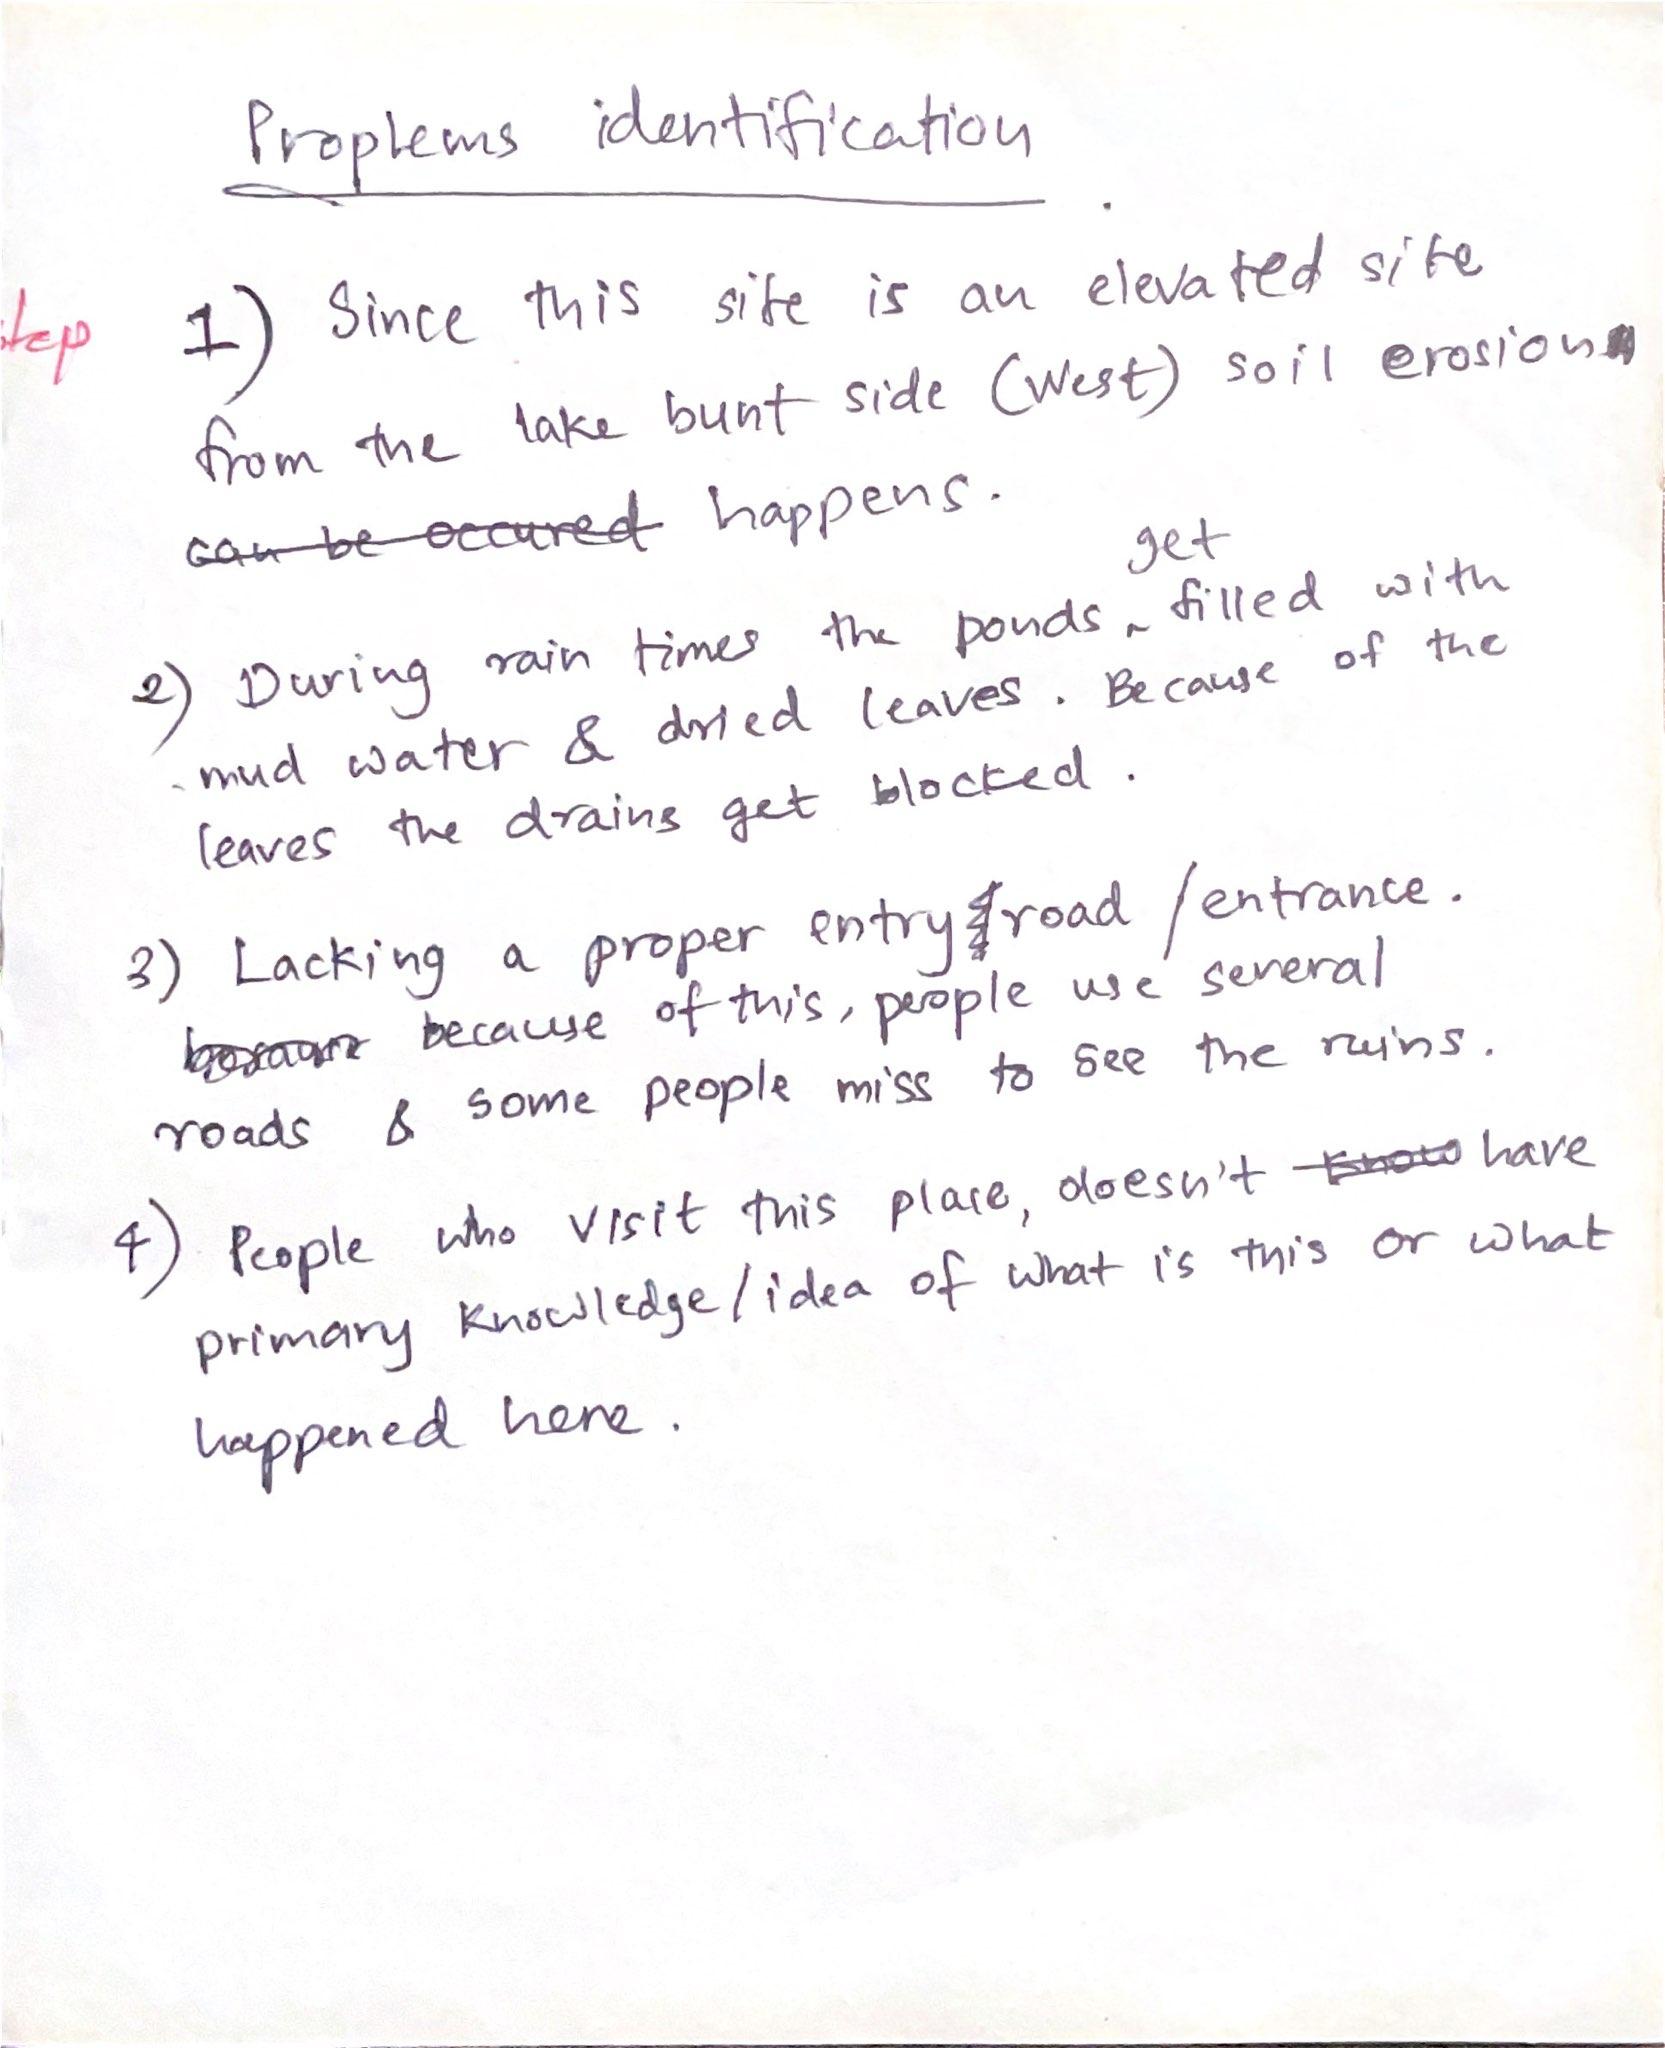 Proplems identification
step 1) Since this site is an elevated site
from the lake bunt side (West) soil erosion
can be occured happens.
get
2) During rain times the ponds filled with
mud water & dried leaves. Because of the
leaves the drains get blocked.
3) Lacking a proper entry road / entrance.
because of this, people use several
roads & some people miss to see the ruins.
4) People who visit this place, doesn't know have
primary knowledge/idea of what is this or what
happened here.